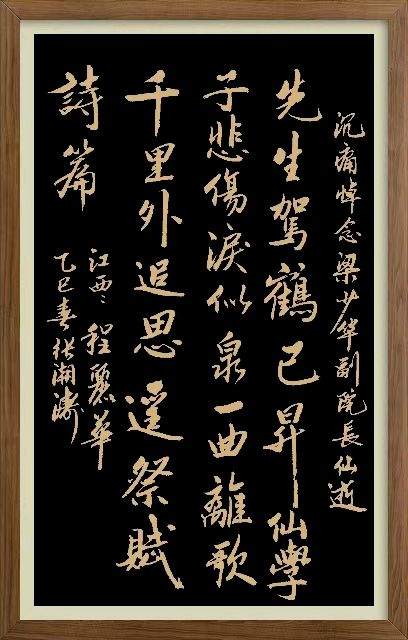 沉痛悼念梁少华副院長仙逝
先生駕鶴已昇仙學
子悲傷淚似泉一曲離歌
千里外追思遥祭賦
詩篇
江西：程麗華
乙巳春张潮涛